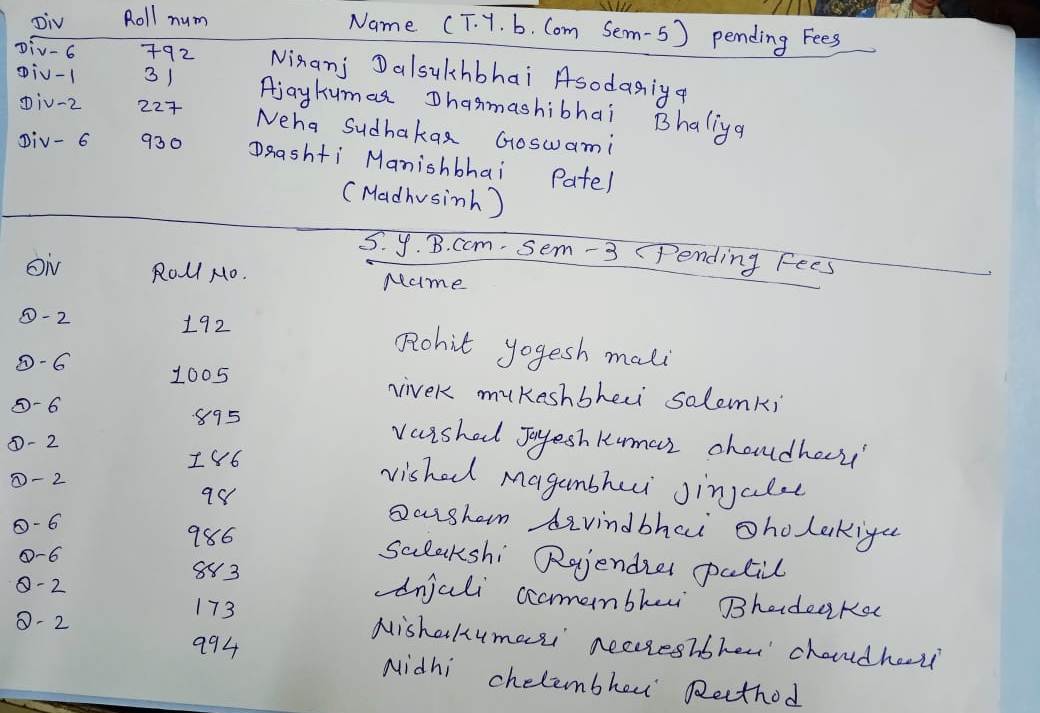 Div Roll num Name (T.Y.b.Com Sem-5) pending Fees
Div-6 792 Niranj Dalsukhbhai Asodariya
Div-1 31 Ajaykumar Dharmashibhai Bhaliya
Div-2 227 Neha Sudhakar Goswami
Div-6 930 Drashti Manishbhai Patel
(Madhusinh)
S.Y.B.com-Sem-3 Pending Fees
Div Roll No. Name
D-2 192 Rohit yogesh mali
D-6 1005 vivek mukeshbhai solanki
D-6 895 Jayeshkumar chaudhari
D-2 186 vishal Maganbhai Jinjala
D-2 98 Darshan Arvindbhai Dholakiya
D-6 986 Rajendra patil
D-6 883 Anjali
D-2 173 Nishakumari Nareshbhai chaudhari
D-2 994 Nidhi Rathod